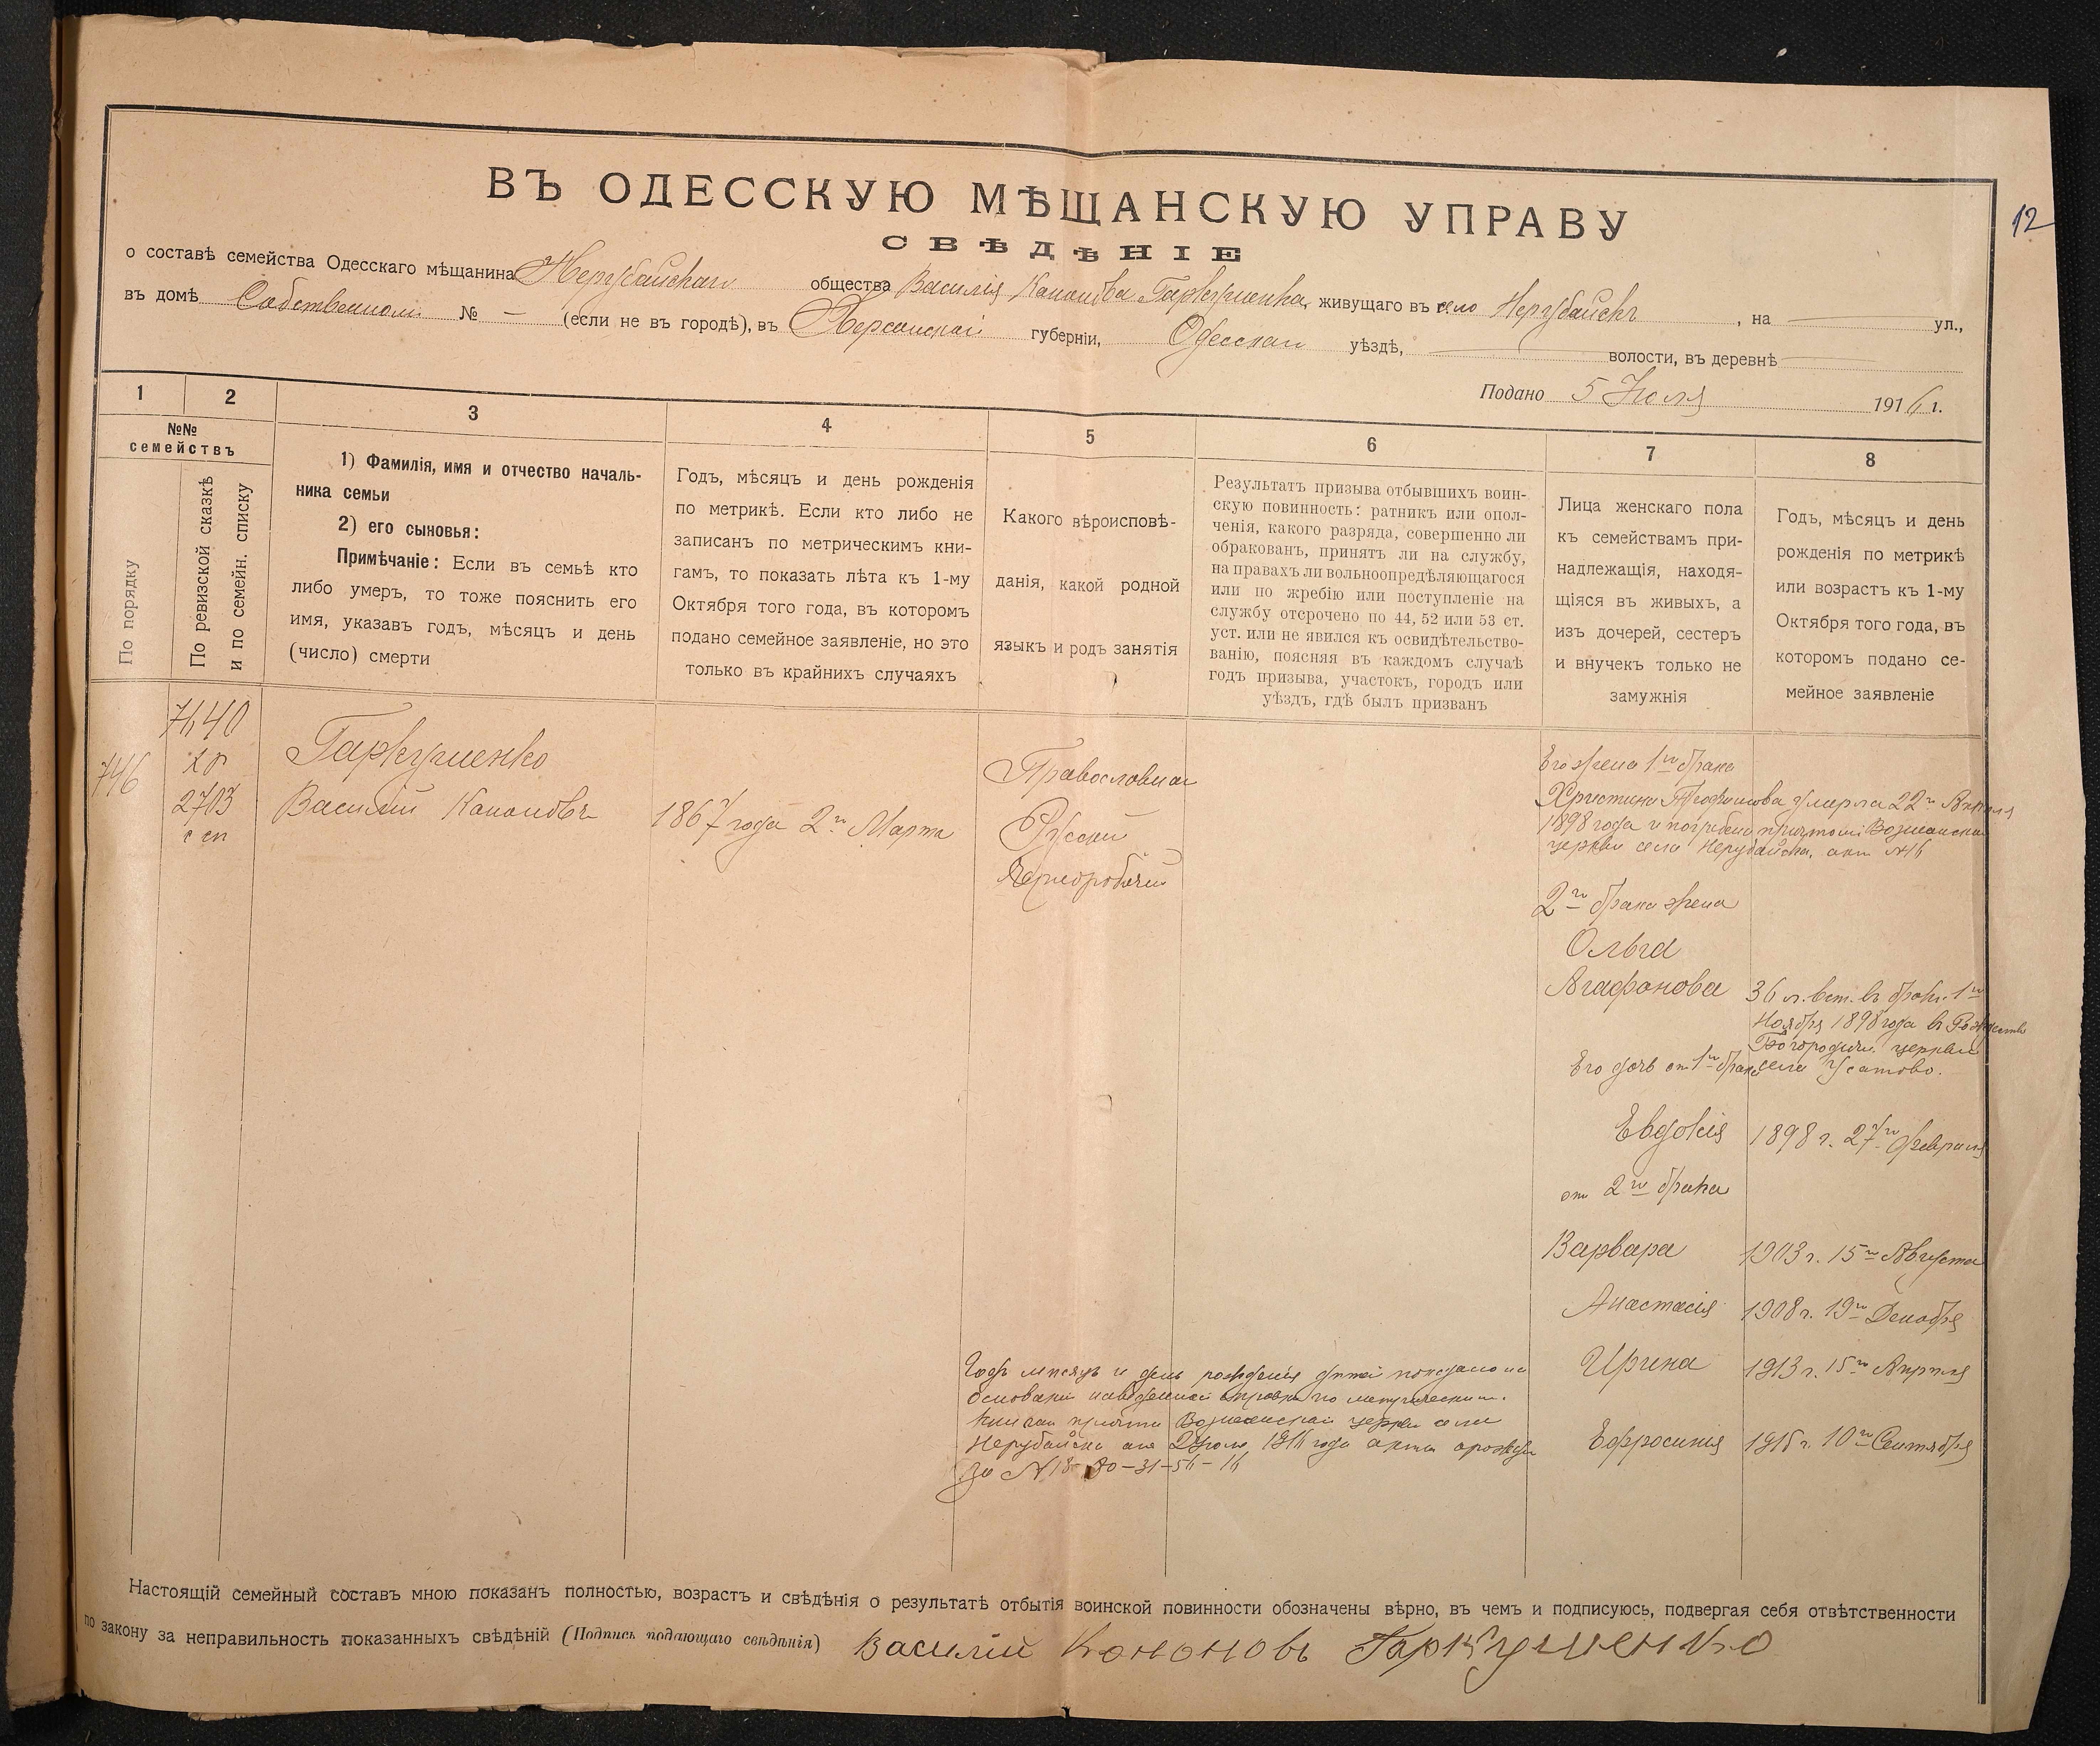 12
ВЪ ОДЕССКУЮ МѢЩАНСКУЮ УПРАВУ
СВѢДѢНІЕ
о составѣ семейства Одесскаго мѣщанина Нерубайскаго общества Василія Кононова Гаркушенка, живущаго въ село Нерубайскъ, на ул.,
въ домѣ Собственом № — (если не въ городѣ), въ Херсонской губерніи, Одесскаи уѣздѣ, волости, въ деревнѣ
Подано 5 Июля 1916 г.
1 2 3 4 5 6 7 8
№№
семействъ
По порядку
По ревизской сказкѣ
и по семейн. списку
1) Фамилія, имя и отчество началь-
ника семьи
2) его сыновья:
Примѣчаніе: Если въ семьѣ кто
либо умеръ, то тоже пояснить его
имя, указавъ годъ, мѣсяцъ и день
(число) смерти
Годъ, мѣсяцъ и день рожденія
по метрикѣ. Если кто либо не
записанъ по метрическимъ кни-
гамъ, то показать лѣта къ 1-му
Октября того года, въ которомъ
подано семейное заявленіе, но это
только въ крайнихъ случаяхъ
Какого вѣроисповѣ-
данія, какой родной
языкъ и родъ занятія
Результатъ призыва отбывшихъ воин-
скую повинность: ратникъ или опол-
ченія, какого разряда, совершенно ли
обракованъ, принятъ ли на службу,
на правахъ ли вольноопредѣляющагося
или по жребію или поступленіе на
службу отсрочено по 44, 52 или 53 ст.
уст. или не явился къ освидѣтельство-
ванію, поясняя въ каждомъ случаѣ
годъ призыва, участокъ, городъ или
уѣздъ, гдѣ былъ призванъ
Лица женскаго пола
къ семействамъ при-
надлежащія, находя-
щіяся въ живыхъ, а
изъ дочерей, сестеръ
и внучекъ только не
замужнія
Годъ, мѣсяцъ и день
рожденія по метрикѣ
или возрастъ къ 1-му
Октября того года, въ
которомъ подано се-
мейное заявленіе
746
2703
с сп
Гаркушенко
Василий Кононовъ
1867 года 2го Марта
Православная
Русский
Чернорабочий
Его жена 1го брака
Христина умерла 22го Апреля
1898 года и погребена причтом Вознесенской
церкви села Нерубайска, акт №16
2го брака жена
Ольга
Агафонова
36 л. вст. въ бракъ 1го
Ноября 1898 года въ Рождество
Богородичн. церкви
села Усатово.
Его дочь от 1го брака
Евдокія 1898 г. 27го Февраля
от 2го брака
Варвара 1903 г. 15го Августа
Анастасія 1908 г. 19го Декабря
Ирина 1913 г. 15го Апреля
Ефросинія 1915 г. 10го Сентября
Годъ месяцъ и день рождения детей показано на
основании наведенной справки по метрическим.
книгам причта Вознесенской церкви села
Нерубайска от 2 Июля 1916 года акты
за №18-80-31-56-16
Настоящій семейный составъ мною показанъ полностью, возрастъ и свѣдѣнія о результатѣ отбытія воинской повинности обозначены вѣрно, въ чемъ и подписуюсь, подвергая себя отвѣтственности
по закону за неправильность показанныхъ свѣдѣній (Подпись подающаго свѣдѣнія) Василий Кононовъ Гаркушенко